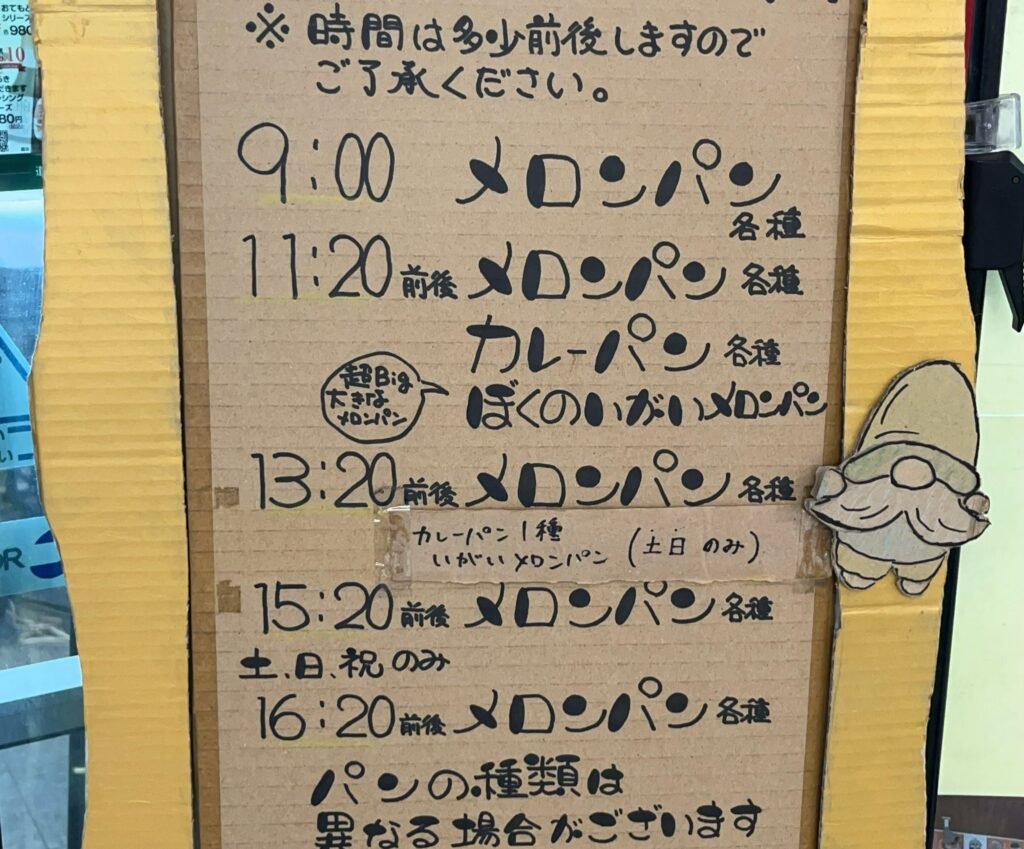 おてもと
シリーズ
980
※時間は多少前後しますので
ご了承ください。
9:00 メロンパン
各種
11:20 前後 メロンパン 各種
カレーパン 各種
超Big
大きな
メロンパン
ぼくのいがいメロンパン
13:20 前後 メロンパン 各種
カレーパン1種
いがいメロンパン (土日のみ)
15:20 前後 メロンパン 各種
土、日、祝のみ
16:20 前後 メロンパン 各種
パンの種類は
異なる場合がございます